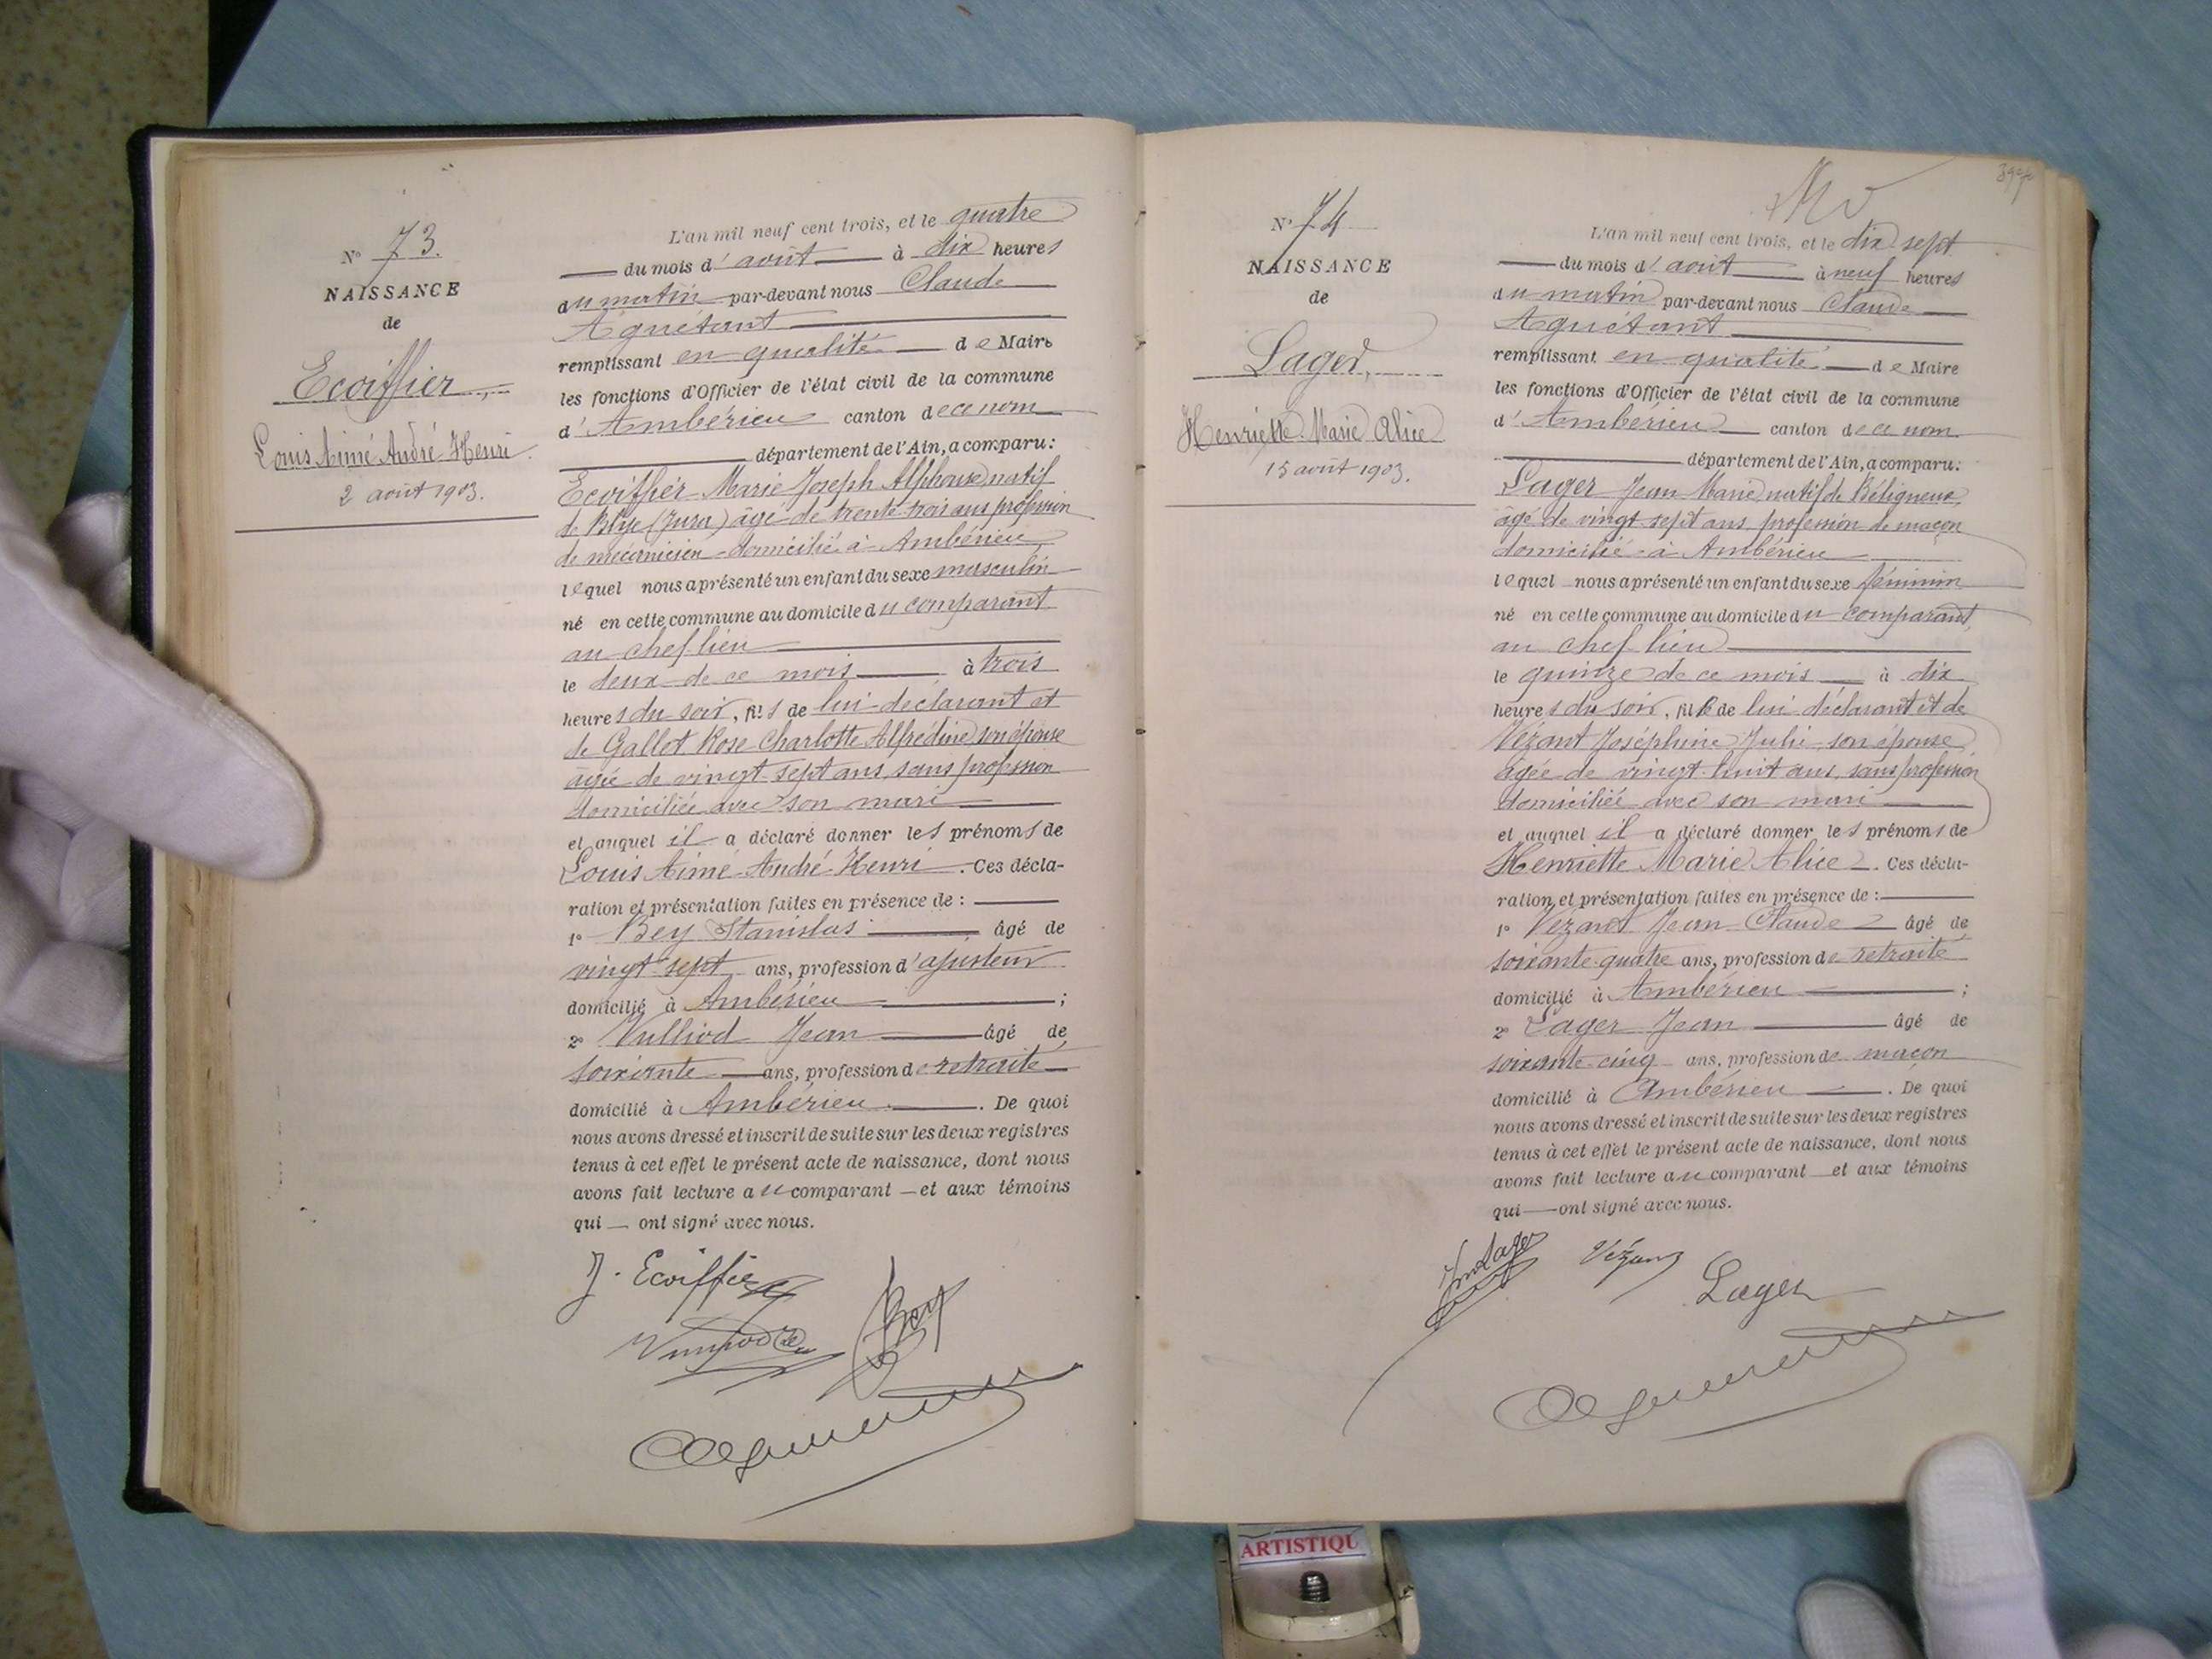 N° 73.
NAISSANCE
de
Ecoiffier
Louis Aimé André Henri
2 août 1903.
L'an mil neuf cent trois, et le quatre
du mois d'août à dix heures
du matin par-devant nous Claude
Aguétant
remplissant en qualité de Maire
les fonctions d'Officier de l'état civil de la commune
d'Ambérieu canton de ce nom
département de l'Ain, a comparu:
Ecoiffier Marie Joseph Alphonse natif
de Blye (Jura) âgé de trente trois ans profession
de mécanicien domicilié à Ambérieu
lequel nous a présenté un enfant du sexe masculin
né en cette commune au domicile du comparant
au chef lieu
le deux de ce mois à trois
heures du soir, fils de lui déclarant et
de Gallot Rose Charlotte Alfrédine son épouse
âgée de vingt sept ans, sans profession
domiciliée avec son mari
et auquel il a déclaré donner les prénoms de
Louis Aimé André Henri. Ces décla-
ration et présentation faites en présence de :
1° Bey Stanislas âgé de
vingt sept ans, profession d'ajusteur
domicilié à Ambérieu ;
2° Vulliod Jean âgé de
soixante ans, profession de retraité
domicilié à Ambérieu. De quoi
nous avons dressé et inscrit de suite sur les deux registres
tenus à cet effet le présent acte de naissance, dont nous
avons fait lecture au comparant et aux témoins
qui ont signé avec nous.
J. Ecoiffier
Bey
N° 74
NAISSANCE
de
Lager,
Henriette Marie Alice
15 août 1903.
L'an mil neuf cent trois, et le dix sept
du mois d'août à neuf heures
du matin par-devant nous Claude
Aguétant
remplissant en qualité de Maire
les fonctions d'Officier de l'état civil de la commune
d'Ambérieu canton de ce nom
département de l'Ain, a comparu:
Lager Jean Marie natif de Béligneux,
âgé de vingt sept ans, profession de maçon
domicilié à Ambérieu
lequel nous a présenté un enfant du sexe féminin
né en cette commune au domicile du comparant,
au chef lieu
le quinze de ce mois à dix
heures du soir, fille de lui déclarant et de
Vézant Joséphine Julie son épouse
âgée de vingt huit ans, sans profession
domiciliée avec son mari
et auquel il a déclaré donner les prénoms de
Henriette Marie Alice. Ces décla-
ration et présentation faites en présence de :
1° Vezant Jean Claude âgé de
soixante quatre ans, profession de retraité
domicilié à Ambérieu ;
2° Lager Jean âgé de
soixante cinq ans, profession de maçon
domicilié à Ambérieu. De quoi
nous avons dressé et inscrit de suite sur les deux registres
tenus à cet effet le présent acte de naissance, dont nous
avons fait lecture au comparant et aux témoins
qui ont signé avec nous.
Lager
ARTISTIQU